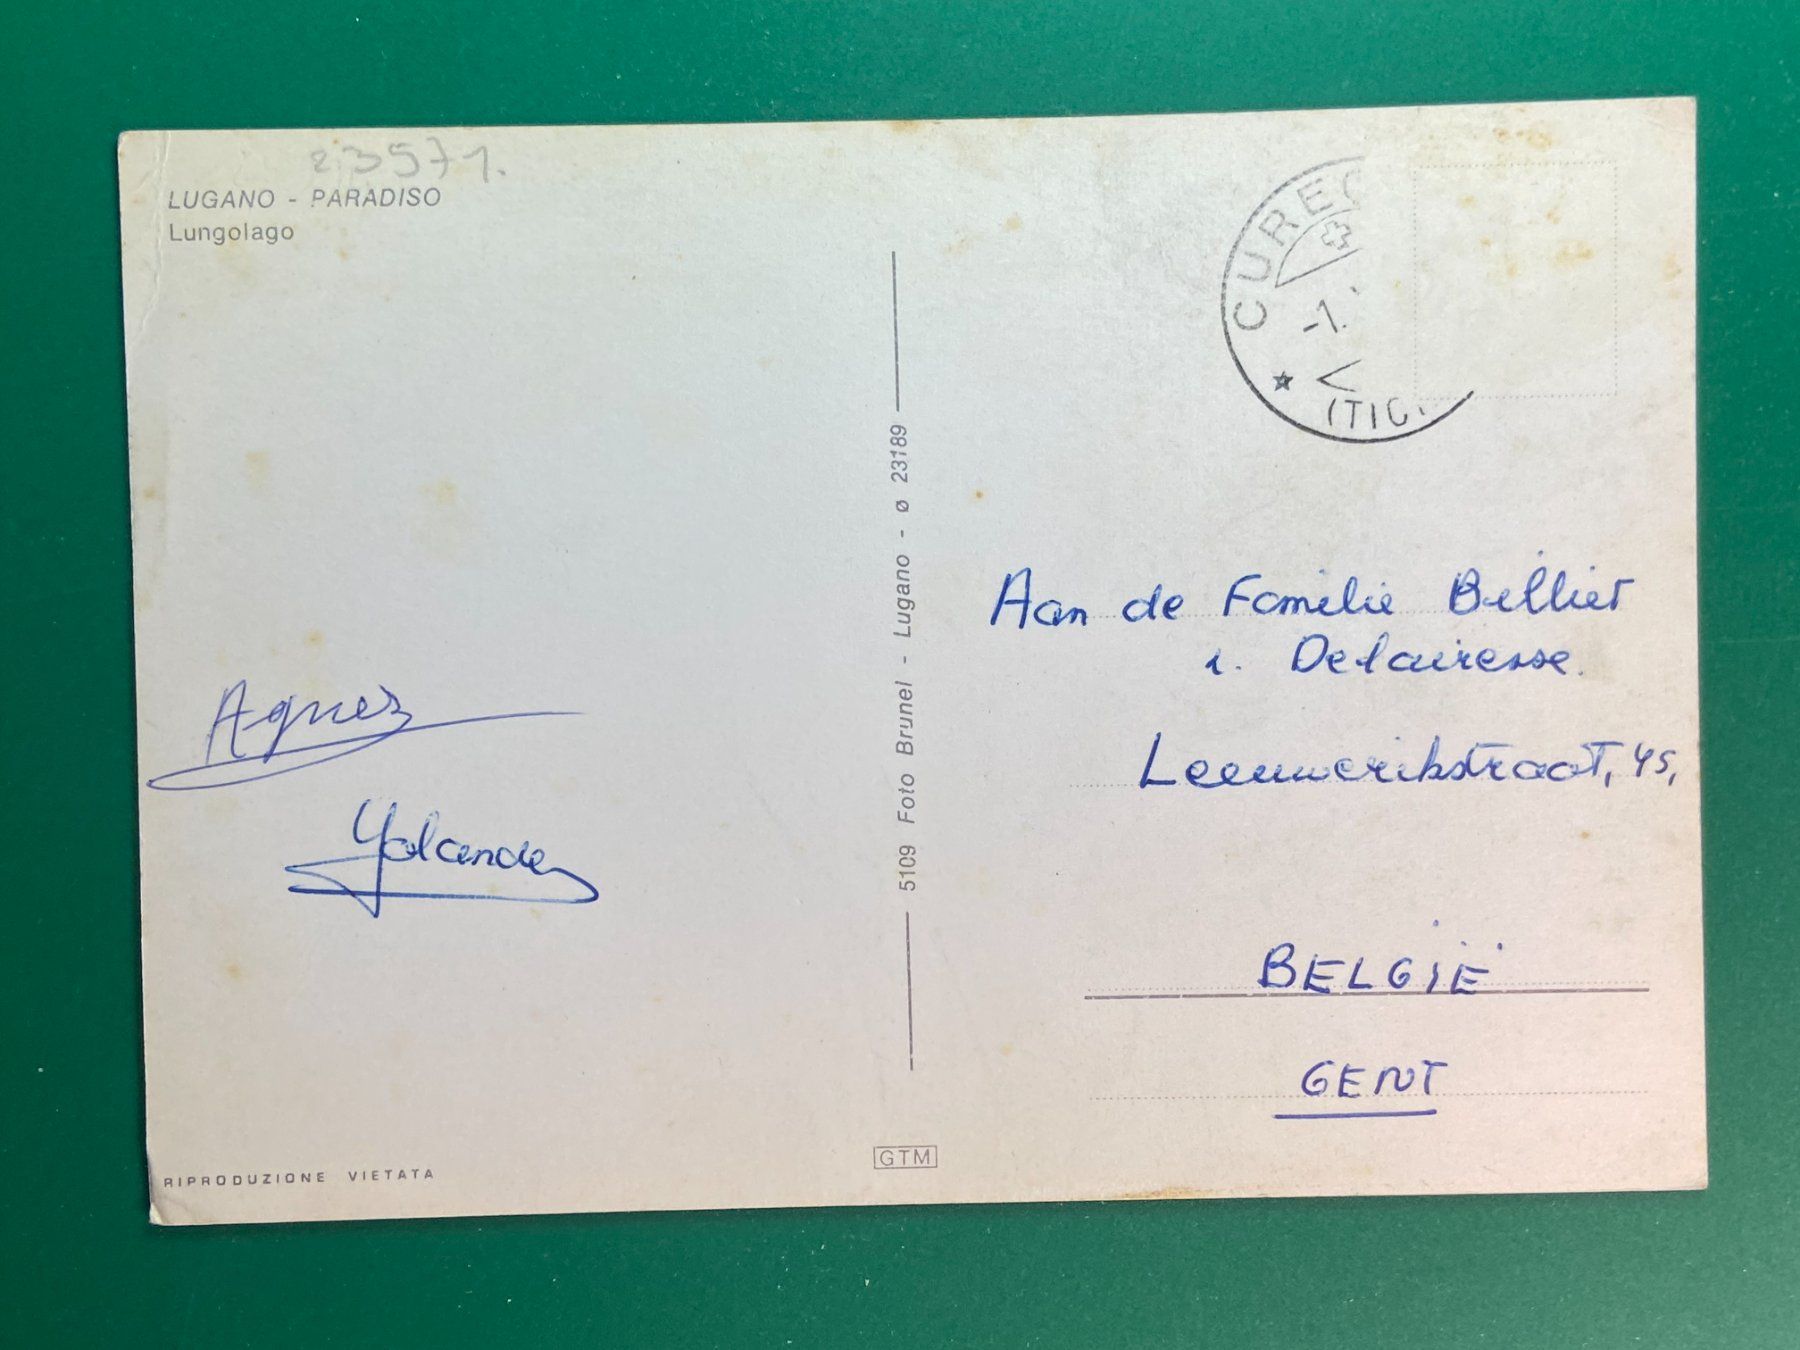 23571.
LUGANO - PARADISO
Lungolago
Agnes
Yolande
RIPRODUZIONE VIETATA
5109 Foto Brunel - Lugano - ø 23189
GTM
CUREG
-7.
(TIC.
Aan de Familie Bellier
Delairesse.
Leeuwerikstraat, 45,
BELGIË
GENT